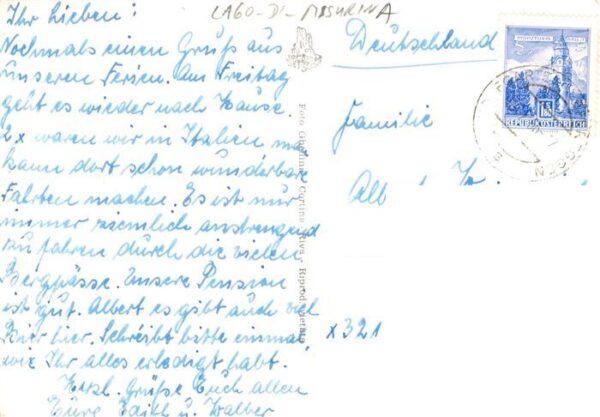 LAGO-DI-MISURINA
Ihr Lieben!
Nochmals einen Gruß aus
unseren Ferien. Am Freitag
geht es wieder nach Hause.
2x waren wir in Italien ma
kann dort schon wunderbare
Fahrten machen. Es ist nur
immer ziemlich anstrengend
zu fahren durch die vielen
Bergpässe. Unsere Pension
ist gut. Albert es gibt auch viel
Bier hier. Schreibt bitte einmal,
wie Ihr alles erledigt habt.
Herzl. Grüße Euch allen
Eure u. Walber
Foto Cortina Riprod. Vietata
Deutschland
Familie
Alb
x321
REPUBLIK ÖSTERREICH